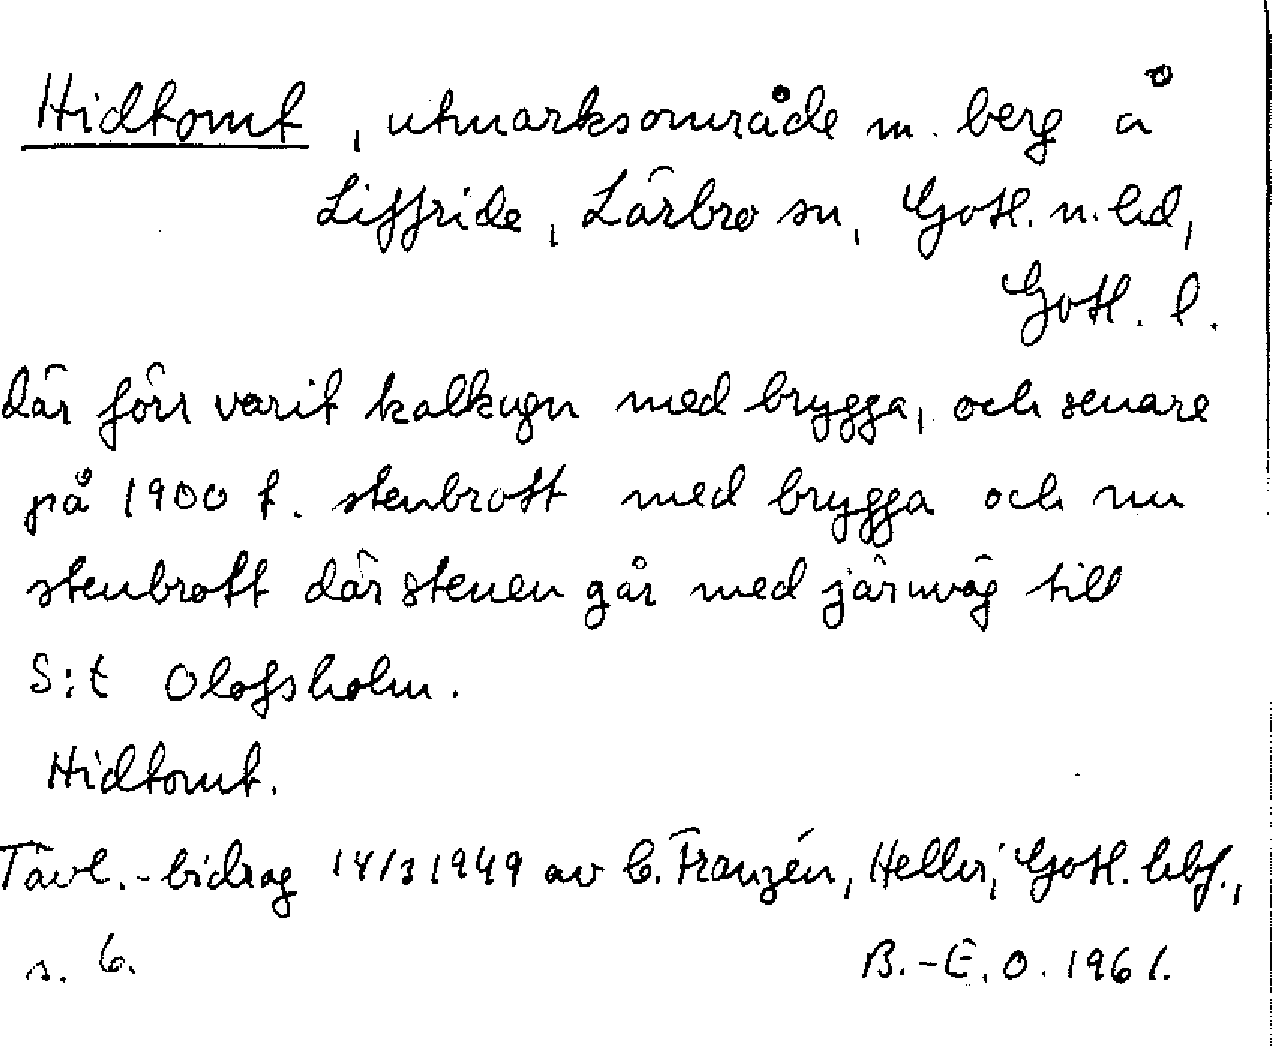 Hidtomt, utmarksområde m. berg å
Liffride, Lärbro sn, Gotl. n. hd,
Gotl. l.
där förr varit kalkugn med brygga, och senare
på 1900 t. stenbrott med brygga och nu
stenbrott där stenen går med järnväg till
S:t Olofsholm.
Hidtomt.
Tävl.-bidrag 14/3 1949 av C. Franzén, Hellvi, Gotl. hbf.,
s. 6. B.-E. O. 1961.